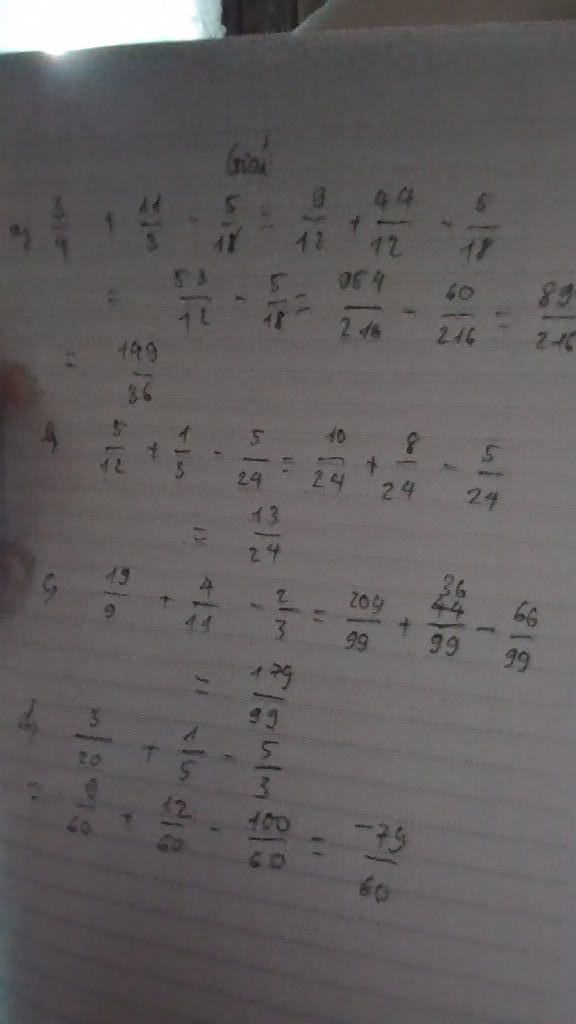 Giải
a, 3/4 + 11/3 - 5/18 = 9/12 + 44/12 - 5/18
= 53/12 - 5/18 = 954/216 - 60/216 = 89/216
= 149/36
5/12 + 1/3 - 5/24 = 10/24 + 8/24 - 5/24
= 13/24
c, 19/9 + 4/11 - 2/3 = 209/99 + 36 44/99 - 66/99
= 179/99
d, 3/20 + 1/5 - 5/3
= 9/60 + 12/60 - 100/60 = -79/60